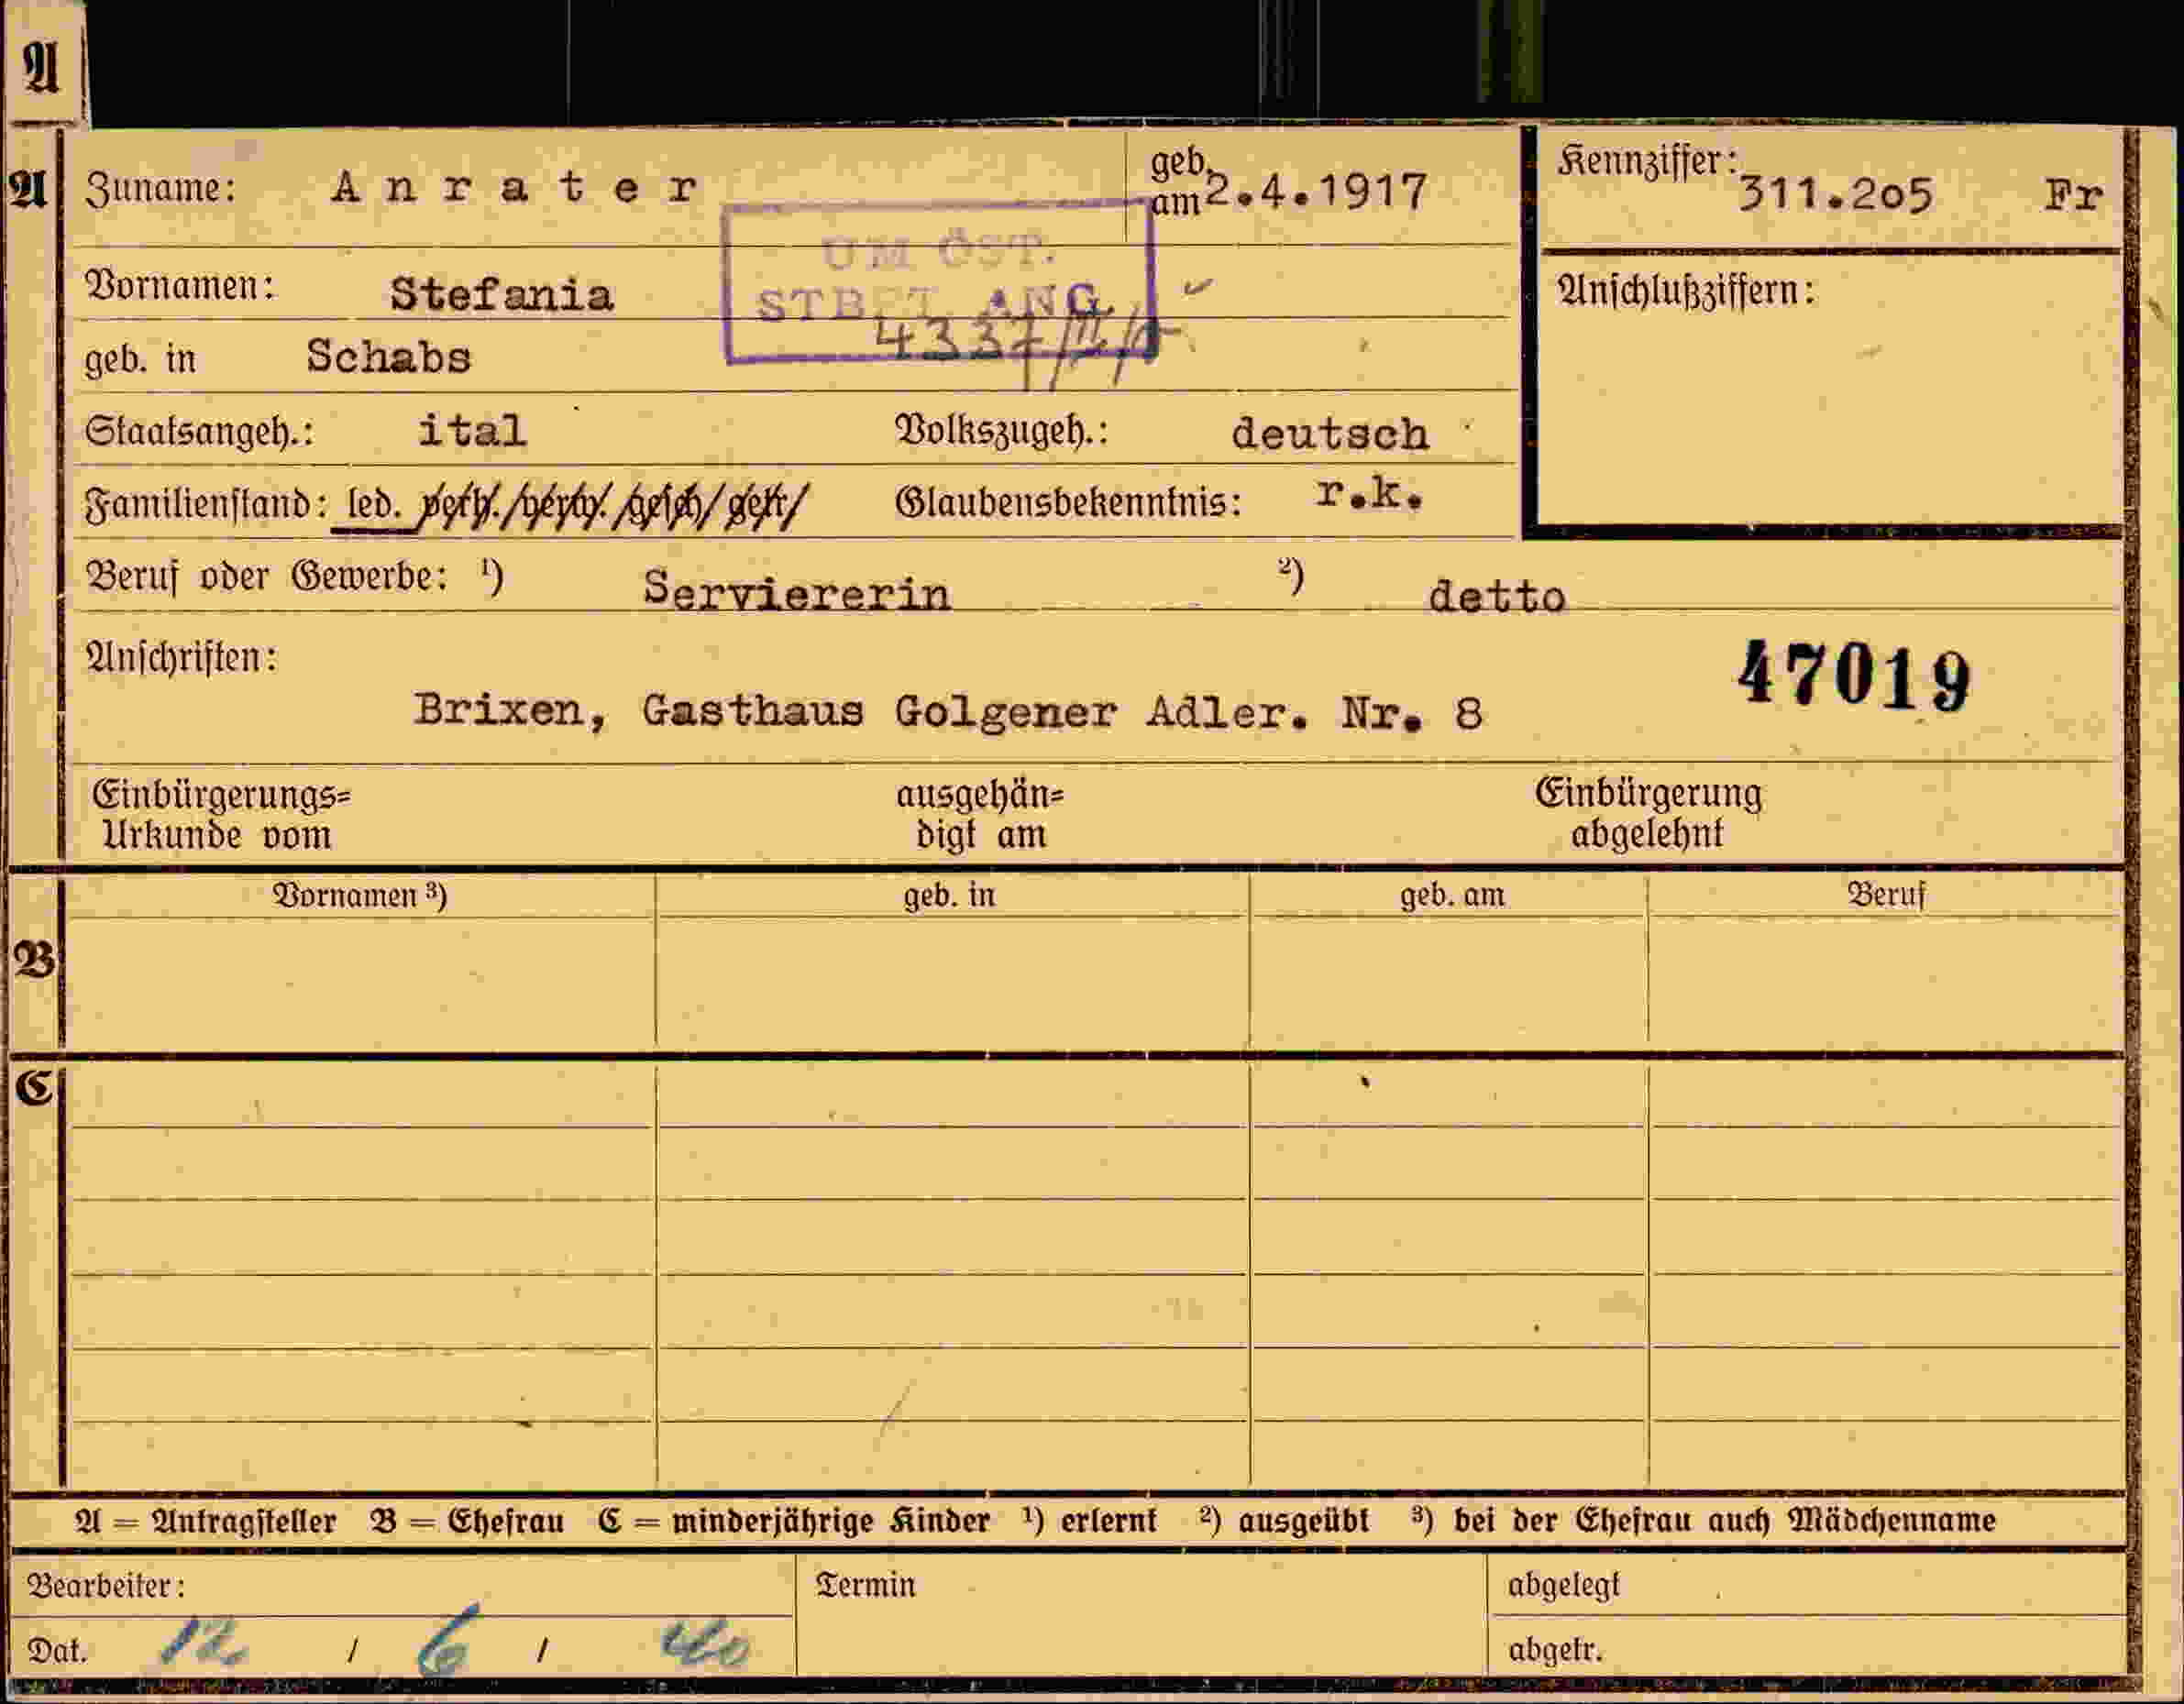 A
A Zuname: Anrater geb. am 2.4.1917 Kennziffer: 311.2o5 Fr
UM ÖST.
Vornamen: Stefania Anschlußziffern:
STBFT. ANG.
4337/II/
geb. in Schabs
Staatsangeh.: ital Volkszugeh.: deutsch
Familienstand: led. verh./verw./gesch/getr/ Glaubensbekenntnis: r.k.
Beruf oder Gewerbe: ¹) Serviererin ²) detto
Anschriften:
47019
Brixen, Gasthaus Golgener Adler. Nr. 8
Einbürgerungs= ausgehän= Einbürgerung
Urkunde vom digt am abgelehnt
Vornamen ³) geb. in geb. am Beruf
B
C
A = Antragsteller B = Ehefrau C = minderjährige Kinder ¹) erlernt ²) ausgeübt ³) bei der Ehefrau auch Mädchenname
Bearbeiter: Termin abgelegt
Dat. 12 / 6 / 40 abgetr.